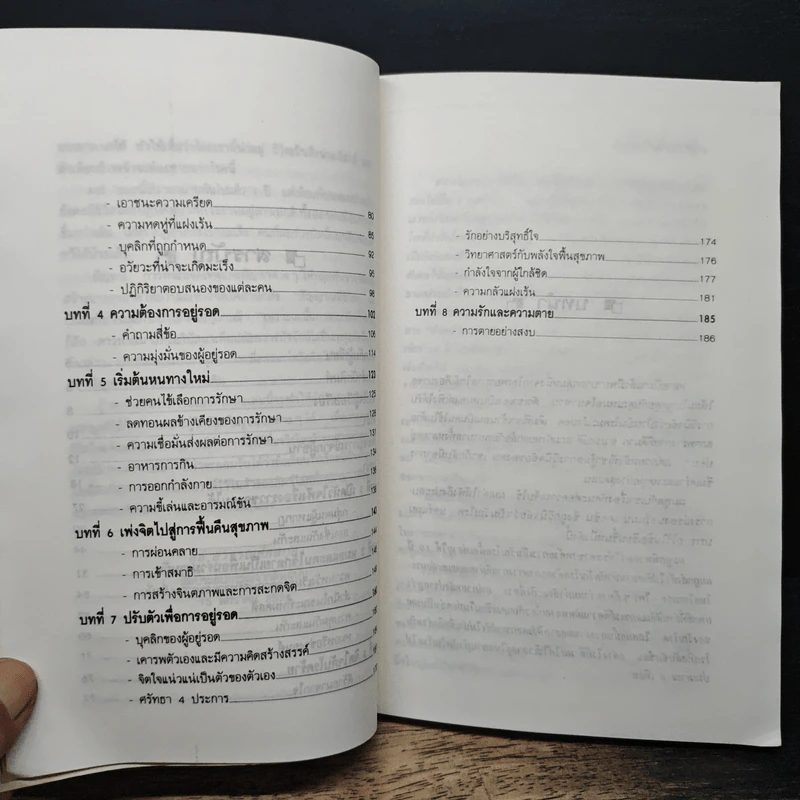 - เอาชนะความเครียด 80
- ความหดหู่ที่แฝงเร้น
- บุคลิกที่ถูกกำหนด 92
- อวัยวะที่น่าจะเกิดมะเร็ง 95
- ปฏิกิริยาตอบสนองของแต่ละคน 98
บทที่ 4 ความต้องการอยู่รอด
- คำถามสี่ข้อ 106
- ความมุ่งมั่นของผู้อยู่รอด 114
บทที่ 5 เริ่มต้นหนทางใหม่ 123
- ช่วยคนไข้เลือกการรักษา 125
- ลดทอนผลข้างเคียงของการรักษา
- ความเชื่อมั่นส่งผลต่อการรักษา
- อาหารการกิน
- การออกกำลังกาย
- ความขี้เล่นและอารมณ์ขัน
บทที่ 6 เพ่งจิตไปสู่การฟื้นคืนสุขภาพ
- การผ่อนคลาย
- การเข้าสมาธิ
- การสร้างจินตภาพและการสะกดจิต
บทที่ 7 ปรับตัวเพื่อการอยู่รอด
- บุคลิกของผู้อยู่รอด
- เคารพตัวเองและมีความคิดสร้างสรรค์
- จิตใจแน่วแน่เป็นตัวของตัวเอง
- ศรัทธา 4 ประการ
- รักอย่างบริสุทธิ์ใจ 174
- วิทยาศาสตร์กับพลังใจฟื้นสุขภาพ 176
- กำลังใจจากผู้ใกล้ชิด 177
- ความกลัวแฝงเร้น 181
บทที่ 8 ความรักและความตาย 185
- การตายอย่างสงบ 186